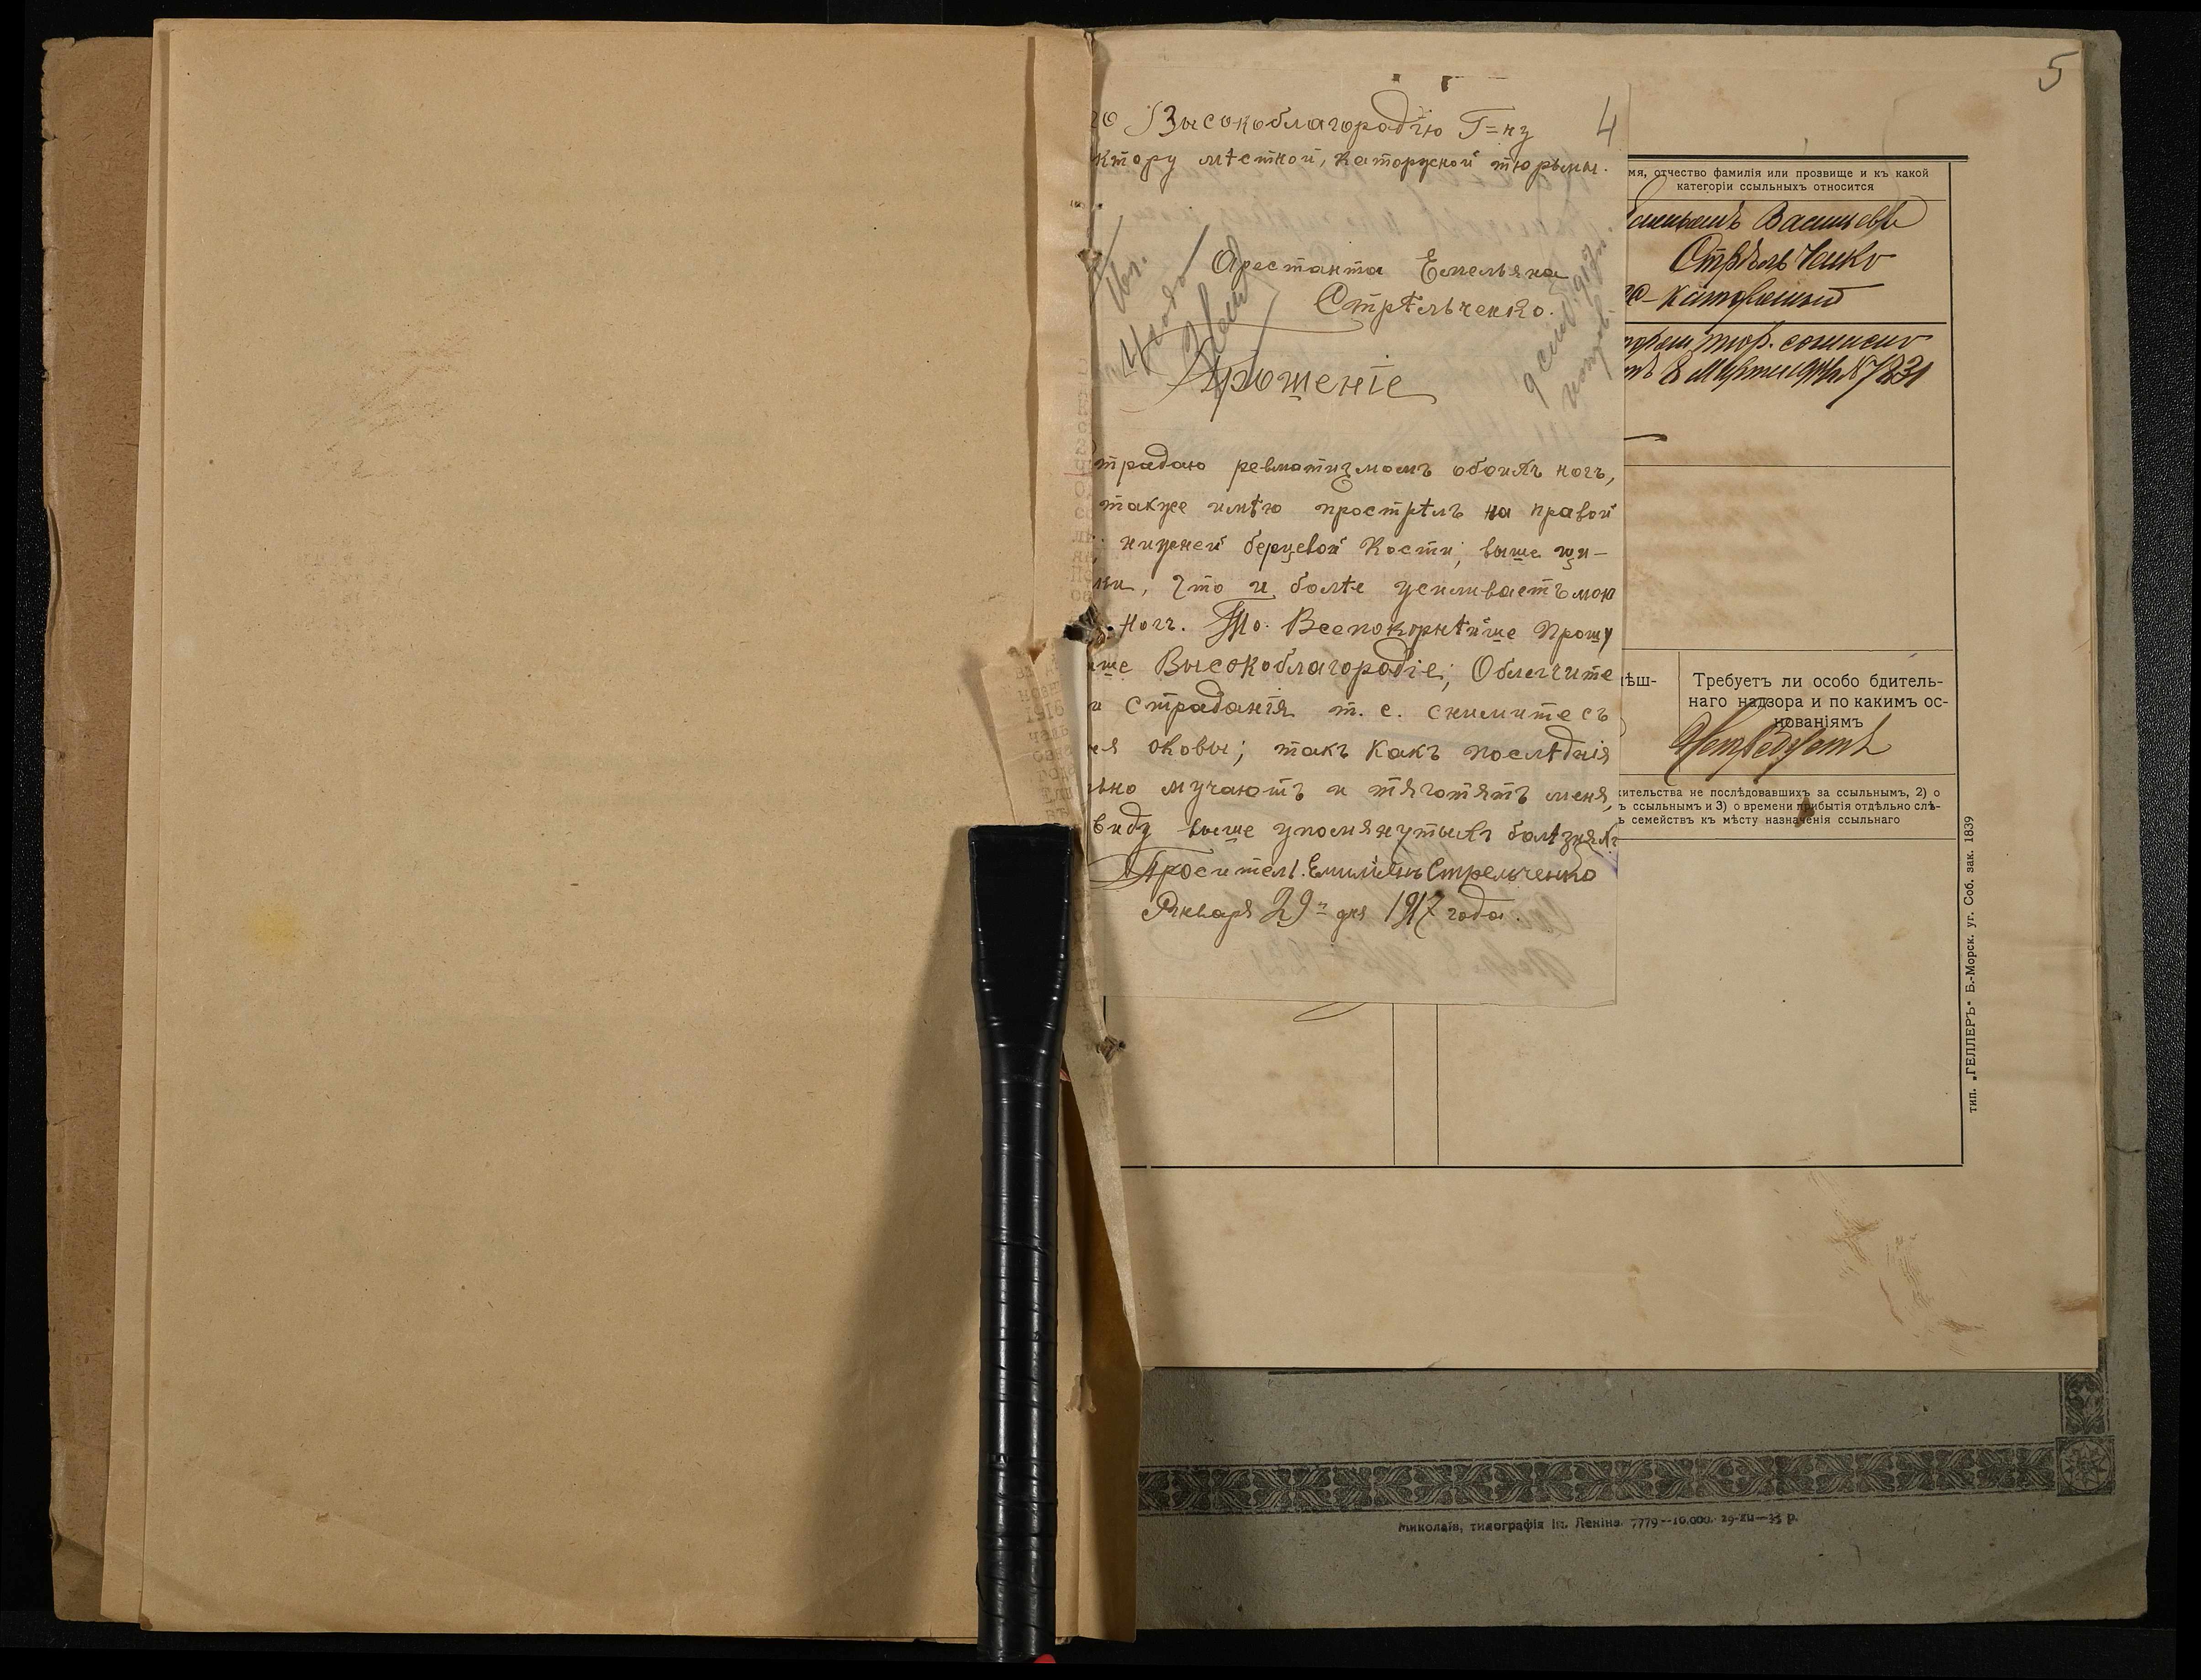 5
го Высокоблагородію Г=ну 4
ктору мѣстной, Каторжной тюрьмы.
Арестанта Емельяна
Стрѣльченко.
Прошеніе
традаю ревматизмомъ обоихъ ногъ,
также имѣю прострѣлъ на правой
нижней берцевой Кости, выше щи-
ки, что и болѣе усиливаетъ мою
ногъ. То. Всепокорнѣйше Прошу
аше Высокоблагородіе; Облегчите
и Страданія т. е. снимите съ
ня оковы; такъ какъ послѣднія
ьно мучаютъ и тяготятъ меня,
виду выше упомянутыхъ болѣзняхъ
Проситель. Емилиянъ Стрельченко
Января 29го дня 1917 года.
мя, отчество фамилія или прозвище и къ какой
категоріи ссыльныхъ относится
Васильевъ
Стрѣльченко
8 Марта № 7831
ѣш-
Требуетъ ли особо бдитель-
наго надзора и по какимъ ос-
нованіямъ
Не требуетъ
жительства не послѣдовавшихъ за ссыльнымъ, 2) о
ъ ссыльнымъ и 3) о времени прибытія отдѣльно слѣ-
ь семействъ къ мѣсту назначенія ссыльнаго
тип. „ГЕЛЛЕРЪ" Б.-Морск. уг. Соб. зак. 1839
Миколаїв, типографія ім. Леніна. 7779--10.000.